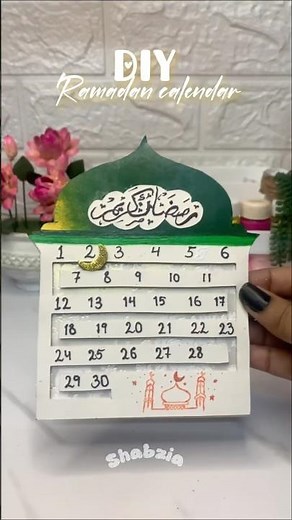 DIY
Ramadan calendar
رمضان كريم
1 2 3 4 5 6
7 8 9 10 11
12 13 14 15 16 17
18 19 20 21 22 23
24 25 26 27 28
29 30
Shabzia